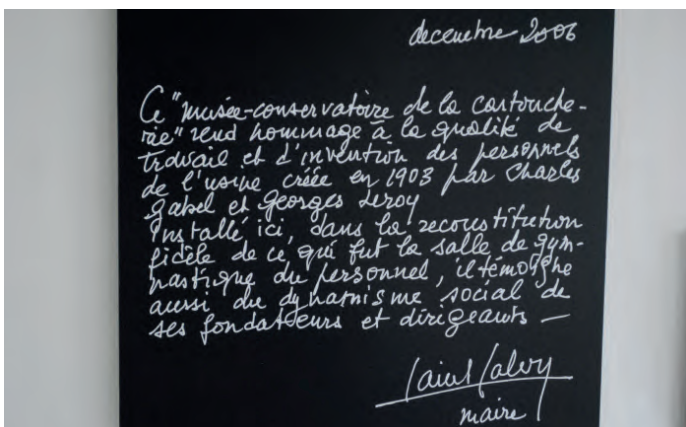 decembre 2006
Ce "musée-conservatoire de la cartouche-
rie" rend hommage à la qualité de
travail et d'invention des personnels
de l'usine créée en 1903 par Charles
Gabel et Georges Leroy
Installé ici, dans la reconstitution
fidèle de ce qui fut la salle de gym-
nastique du personnel, il témoigne
aussi du dynamisme social de
ses fondateurs et dirigeants —
maire